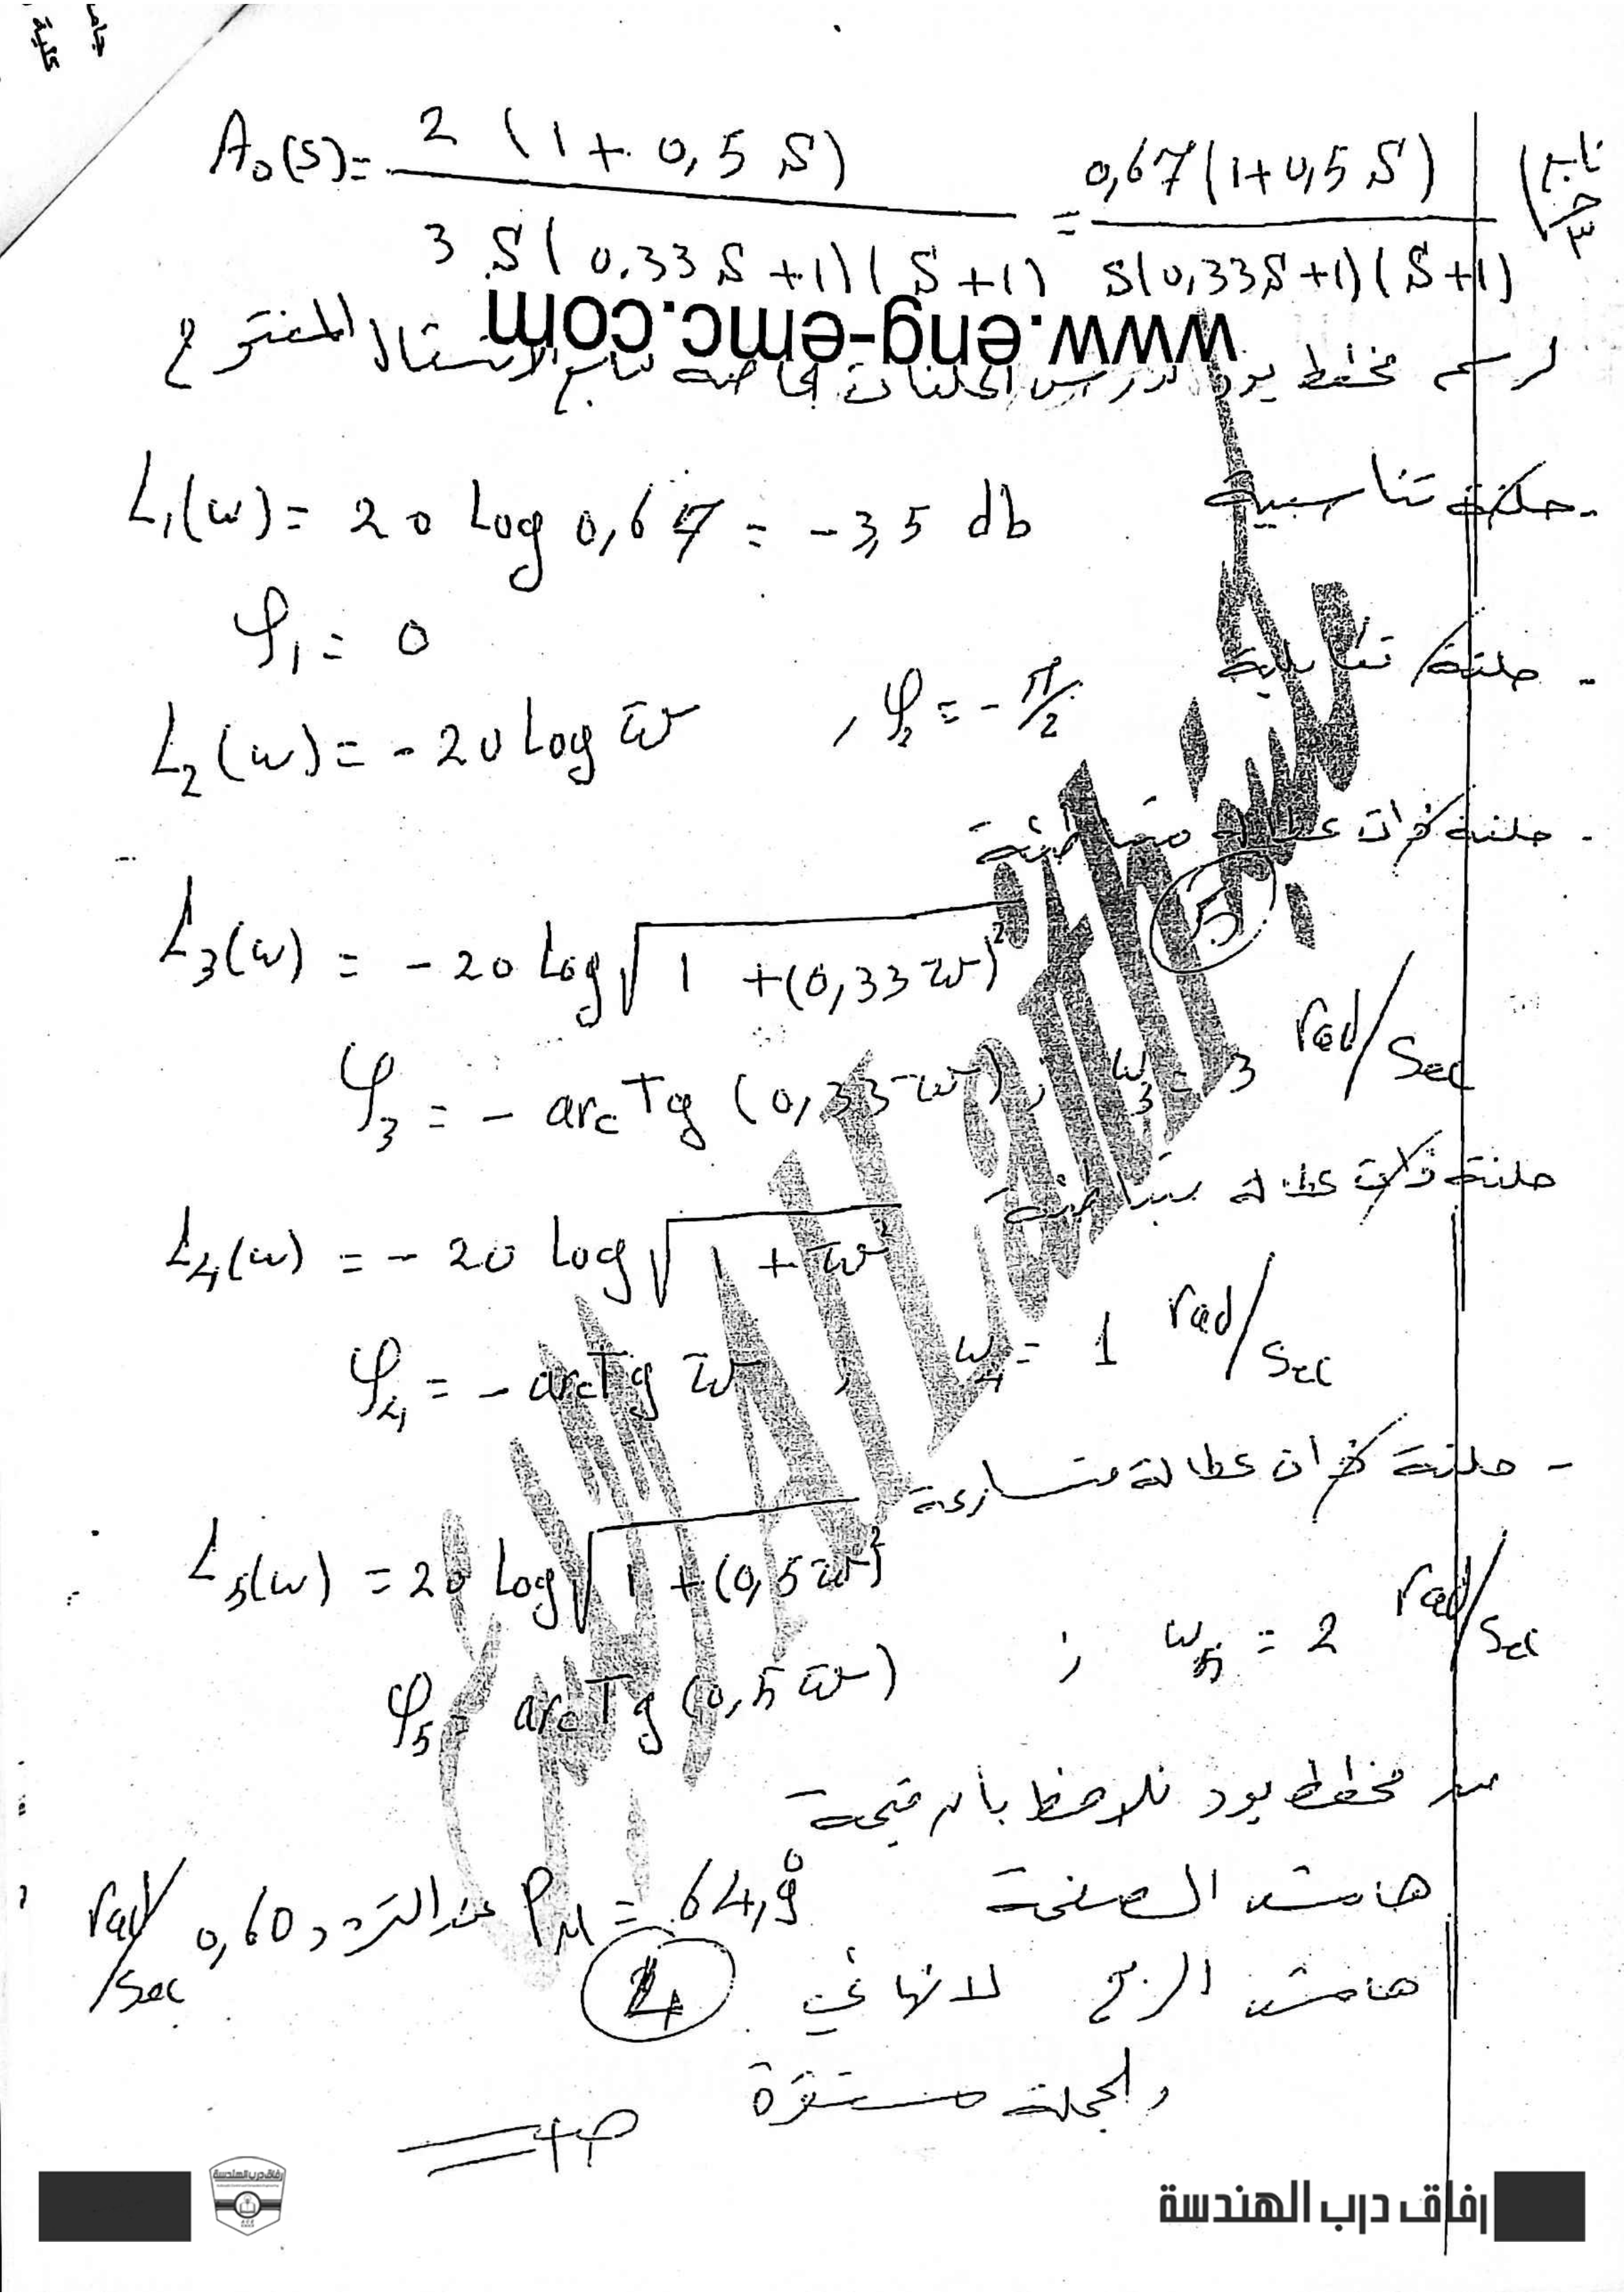 تابع
ج٣)
A₀(S) = 2 (1 + 0,5 S) / 3 S (0.33 S + 1) (S + 1) = 0,67 (1 + 0,5 S) / S (0,33 S + 1) (S + 1)
www.eng-emc.com
لرسم مخطط بود ندرس الحلقات الخاصة بتابع الانتقال المفتوح
- حلقة تناسبية
L₁(w) = 20 Log 0,67 = -3,5 db
φ₁ = 0
- حلقة تكاملية
L₂(w) = -20 Log w , φ₂ = -π/2
- حلقة ذات عطالة متباطئة
5
L₃(w) = -20 Log √(1 + (0,33 w)²)
φ₃ = - arc Tg (0,33 w) , w₃ = 3 rad/Sec
حلقة ذات عطالة متباطئة
L₄(w) = -20 Log √(1 + w²)
φ₄ = - arc Tg w , w₄ = 1 rad/Sec
- حلقة ذات عطالة متسارعة
L₅(w) = 20 Log √(1 + (0,5 w)²)
φ₅ = arc Tg (0,5 w) ; w₅ = 2 rad/Sec
من مخطط بود نلاحظ بأن قيمة
هامش الصفحة P_M = 64,9° عند التردد 0,60 rad/Sec
هامش الربح لانهائي
4
والجملة مستقرة
رفاق درب الهندسة